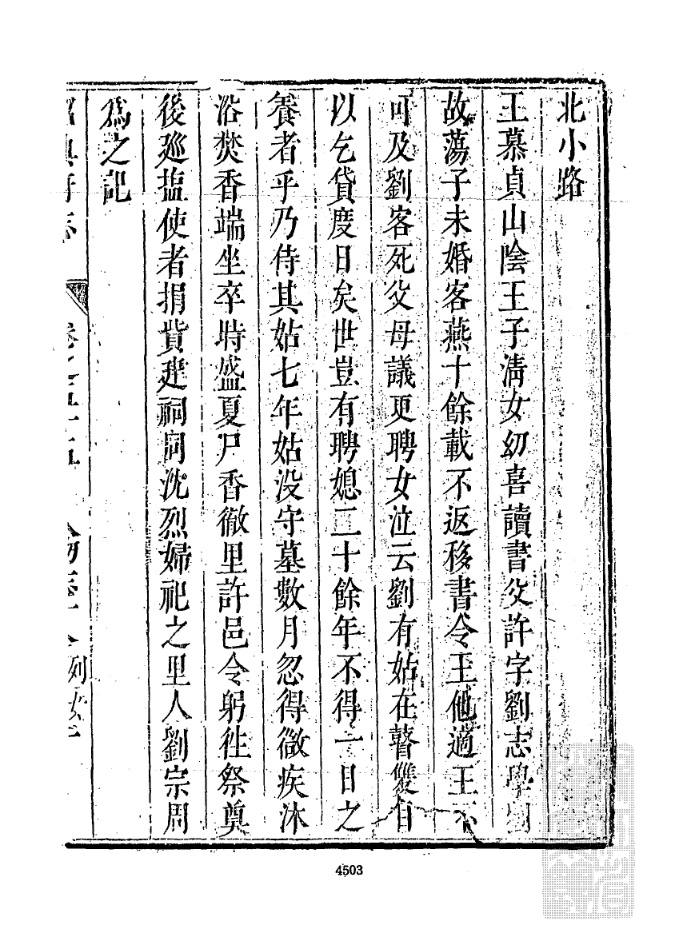 北小路
王慕貞山陰王子清女幼喜讀書父許字劉志學
故蕩子未婚客燕十餘載不返移書令王他適王不
可及劉客死父母議更聘女泣云劉有姑在瞽雙目
以乞貸度日矣世豈有聘媳二十餘年不得一日之
養者乎乃侍其姑七年姑没守墓數月忽得微疾沐
浴焚香端坐卒時盛夏尸香徹里許邑令躬徃祭奠
後廵塩使者捐貲建祠同沈烈婦祀之里人劉宗周
爲之記
卷之五十五 人物志 列女
4503